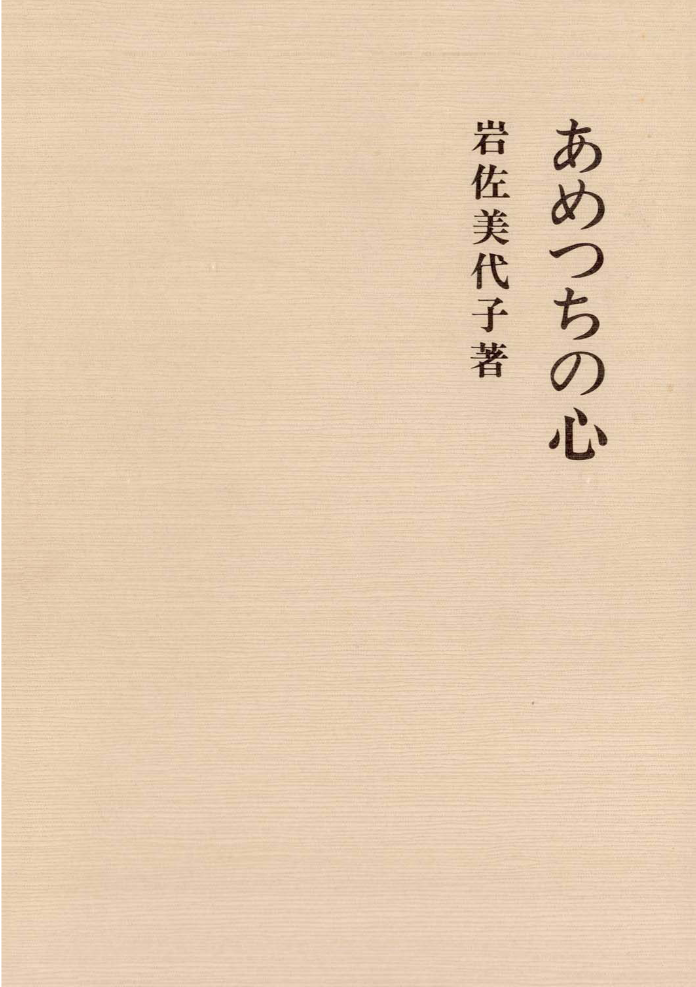 あめつちの心
岩佐美代子著